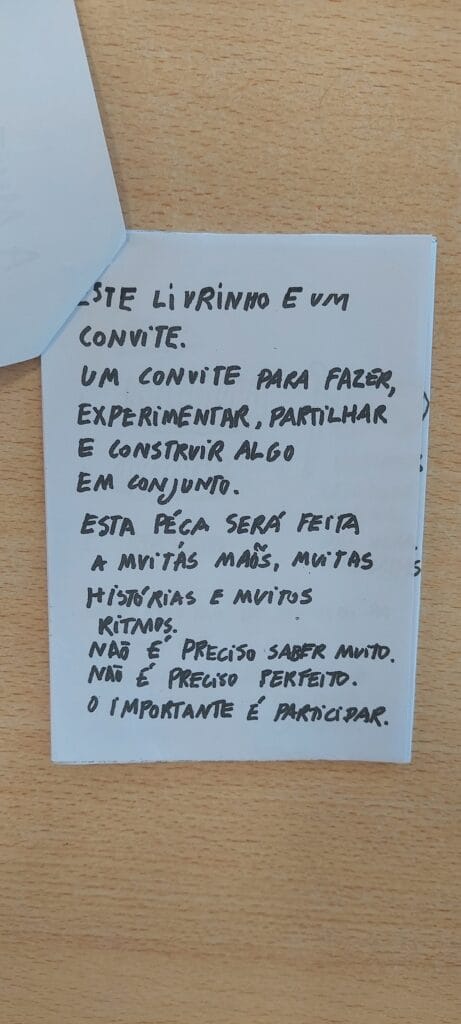 ESTE LIVRINHO E UM
CONVITE.
UM CONVITE PARA FAZER,
EXPERIMENTAR, PARTILHAR
E CONSTRUIR ALGO
EM CONJUNTO.
ESTA PÉCA SERÁ FEITA
A MUITÁS MAÕS, MUITAS
HISTÓRIAS E MUITOS
RITMOS.
NÃO É PRECISO SABER MUITO.
NÃO É PRECISO PERFEITO.
O IMPORTANTE É PARTICIPAR.